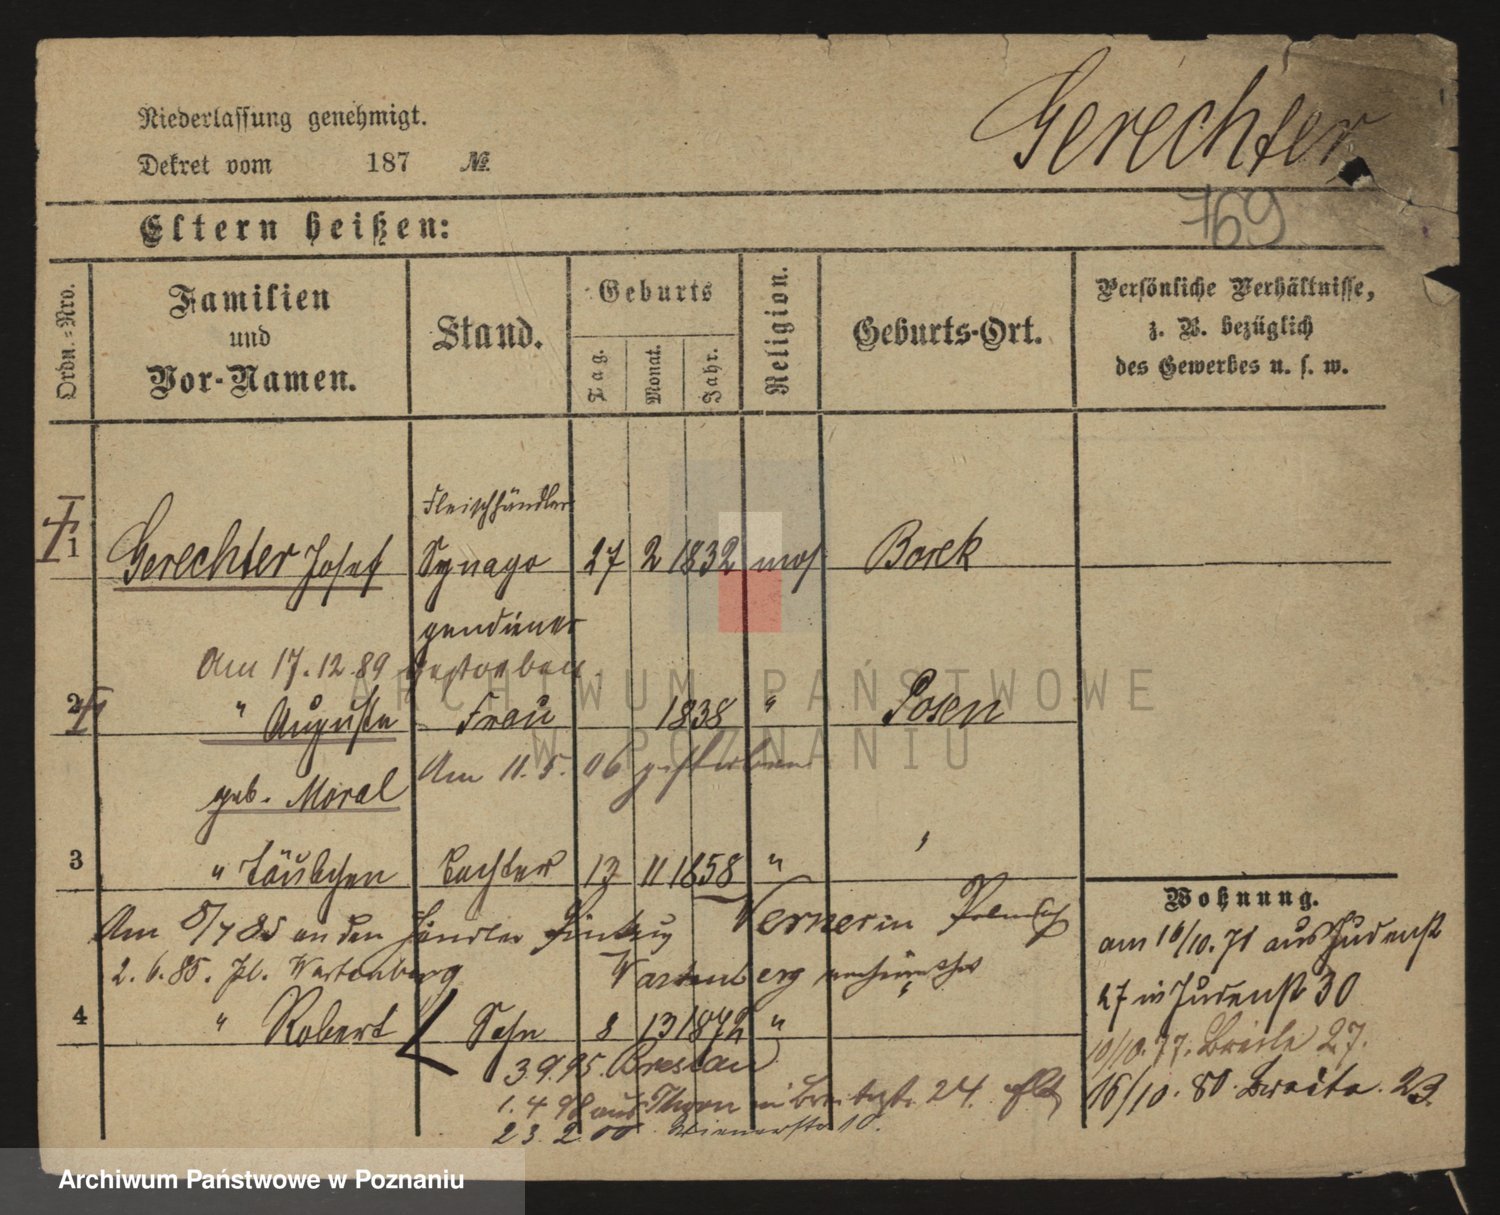 Niederlassung genehmigt.
Dekret vom 187 №
Gerechter
769
Eltern heißen:
Ordn.-Nro.
Familien
und
Vor-Namen.
Stand.
Geburts
Tag.
Monat.
Jahr.
Religion.
Geburts-Ort.
Persönliche Verhältnisse,
z. B. bezüglich
des Gewerbes u. s. w.
Fleischhändler
1 Gerechter Josef Synago 27 2 1832 mos Borek
gendiener
Am 17.12.89 gestorben.
2 " Auguste Frau 1838 " Posen
geb. Moral
Am 11.5.06 gestorben
3 " Täubchen Tochter 13 11 1858 " "
Wohnung.
Am 5/7 85 an den Händler
2.6.85. Wartenberg
Wartenberg
4 " Robert Sohn 8 13 1872 "
3.9.95. Breslau
1.4 98 aus Thorn in 24.
23.2.00. Wienerstr 10.
am 16/10.71 aus Judenst
27 in Judenst 30
10/10.77. Breite 27.
16/10.80. Breite. 23.
ARCHIWUM PAŃSTWOWE
W POZNANIU
Archiwum Państwowe w Poznaniu